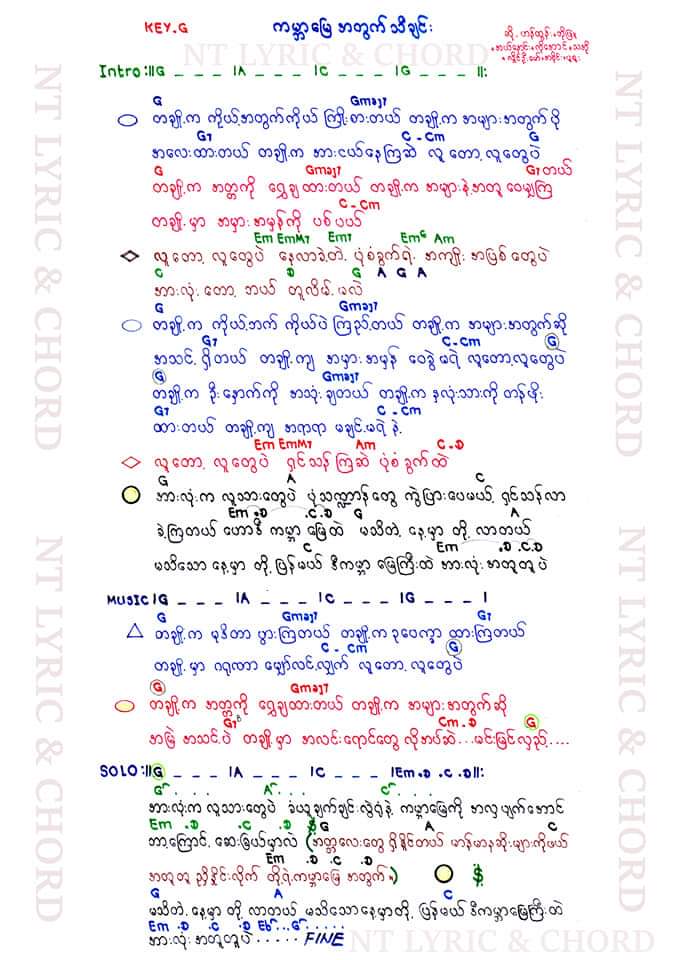 KEY.G
ကမ္ဘာမြေ အတွက် သီချင်း
NT LYRIC & CHORD
Intro :||G _ _ _ |A _ _ _ |C _ _ _ |G _ _ _ ||:
G Gmaj7
တချို့က ကိုယ့်အတွက်ကိုယ် ကြိုးစားတယ် တချို့က အများအတွက်ပို
G7 C - Cm G
အလေးထားတယ် တချို့က အားငယ်နေကြဆဲ လူတော့ လူတွေပဲ
G Gmaj7 G7 တယ်
တချို့က အတ္တကို ရှေ့ချထားတယ် တချို့က အများနဲ့အတူ ဝေမျှကြ
C - Cm
တချို့မှာ အမှားအမှန်ကို ပစ်ပယ်
Em EmM7 Em7 Em6 Am
လူတော့ လူတွေပဲ နေလာခဲ့တဲ့ ပုံစံခွက်ရဲ့ အကျိုးအဖြစ်တွေပဲ
C D G A G A
အားလုံးတော့ ဘယ်တူလိမ့်မလဲ
G Gmaj7
တချို့က ကိုယ့်ဘက်ကိုယ်ပဲ ကြည့်တယ် တချို့က အများအတွက်ဆို
G7 C-Cm G
အသင့်ရှိတယ် တချို့ကျ အမှားအမှန် ဝေခွဲမရဲ့ လူတော့လူတွေပဲ
G Gmaj7
တချို့က ဦးနှောက်ကို အသုံးချတယ် တချို့က နှလုံးသားကို တန်ဖိုး
G7 C - Cm
ထားတယ် တချို့ကျ အရာရာ မချင့်မရဲနဲ့
Em EmM7 Am C-D
လူတော့ လူတွေပဲ ရှင်သန်ကြဆဲ ပုံစံခွက်ထဲ
G A C
အားလုံးက လူသားတွေပဲ ပုံသဏ္ဌာန်တွေ ကွဲပြားပေမယ့် ရှင်သန်လာ
Em .D .C.D G A
ခဲ့ကြတယ် ဟောဒီ ကမ္ဘာမြေထဲ မသိတဲ့နေ့မှာ တို့လာတယ်
C Em .D .C.D
မသိသောနေ့မှာ တို့ပြန်မယ် ဒီကမ္ဘာမြေကြီးထဲ အားလုံးအတူတူပဲ
MUSIC |G _ _ _ |A _ _ _ |C _ _ _ |G _ _ _ |
G Gmaj7 G7
တချို့က မုဒိတာ ပွားကြတယ် တချို့က ဥပေက္ခာ ထားကြတယ်
C - Cm G
တချို့မှာ ဂရုဏာ မျှော်လင့်လျှက် လူတော့ လူတွေပဲ
G Gmaj7
တချို့က အတ္တကို ရှေ့ချထားတယ် တချို့က အများအတွက်ဆို
G7 Cm.D G
အမြဲအသင့်ပဲ တချို့မှာ အလင်းရောင်တွေ လိုအပ်ဆဲ...မင်းမြင်လှည့်....
SOLO :||G _ _ _ |A _ _ _ |C _ _ _ |Em .D .C .D||:
G . . . A . . . C . . .
အားလုံးက လူသားတွေပဲ ခံယူချက်ချင်းလွဲရုံနဲ့ ကမ္ဘာမြေကို အလှပျက်အောင်
Em .D .C .D G A C
ဘာ့ကြောင့် ဆေးခြယ်မှာလဲ (အတ္တလေးတွေ ရှိနိုင်တယ် မာန်မာနဆိုးများကိုဖယ်
Em .D .C .D
အတူတူ ညှိနှိုင်းလိုက် တို့ရဲ့ကမ္ဘာမြေ အတွက်)
G A C
မသိတဲ့နေ့မှာ တို့လာတယ် မသိသောနေ့မှာတို့ ပြန်မယ် ဒီကမ္ဘာမြေကြီးထဲ
Em .D .C .D Eb...G......
အားလုံးအတူတူပဲ..... FINE
NT LYRIC & CHORD
NT LYRIC & CHORD
NT LYRIC & CHORD
NT LYRIC & CHORD
NT LYRIC & CHORD